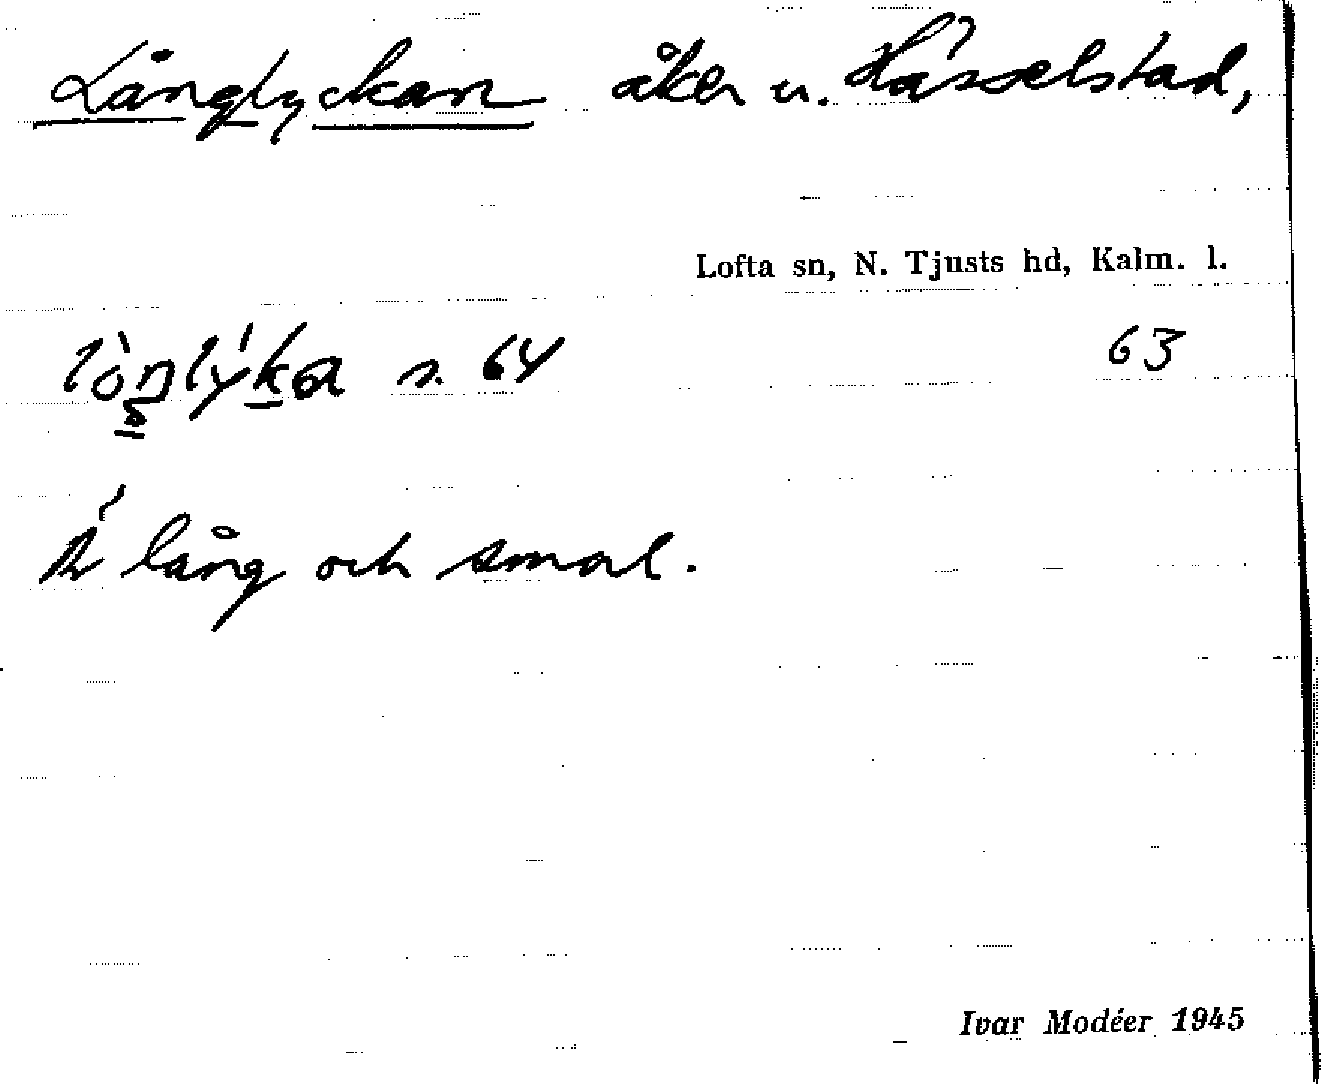 Långlyckan åker u. Hässelstad,
Lofta sn, N. Tjusts hd, Kalm. l.
s. 64 63
Är lång och smal.
Ivar Modéer 1945